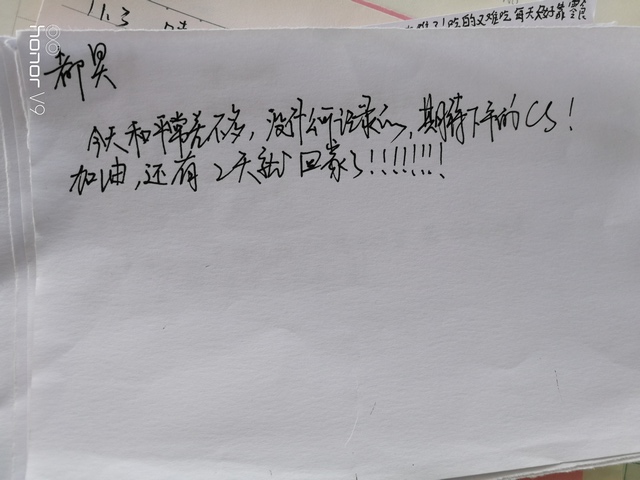 11.3
吃的又难吃 每天只好靠零食
都昊
今天和平常差不多，没什么可记录的，期待下午的CS！
加油，还有2天就回家了!!!!!!!!
honor V9